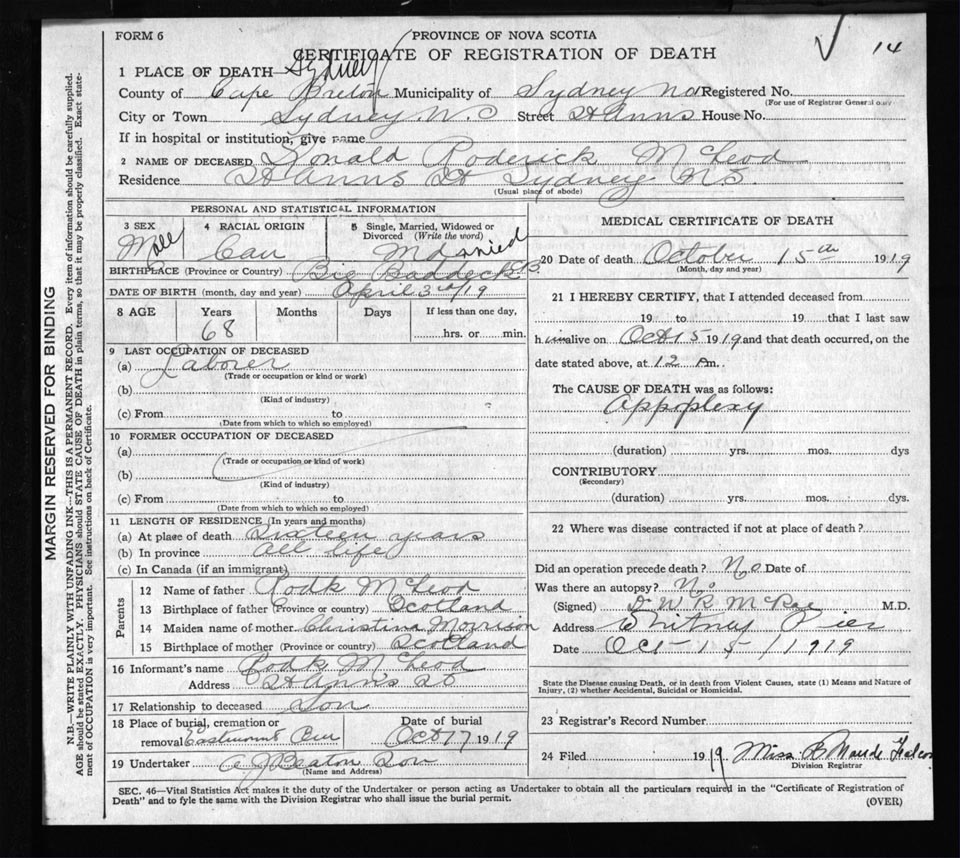 FORM 6
PROVINCE OF NOVA SCOTIA
CERTIFICATE OF REGISTRATION OF DEATH
14
1 PLACE OF DEATH—Sydney
County of Cape Breton Municipality of Sydney Registered No.
(For use of Registrar General only
City or Town Sydney N. S Street St Anns House No.
If in hospital or institution, give name
2 NAME OF DECEASED Donald Roderick McLeod
Residence St Anns St Sydney N.S.
(Usual place of abode)
PERSONAL AND STATISTICAL INFORMATION
3 SEX Male
4 RACIAL ORIGIN Cau
5 Single, Married, Widowed or Divorced (Write the word) Married
BIRTHPLACE (Province or Country) Big Baddeck C.B.
DATE OF BIRTH (month, day and year) April 3rd/19
8 AGE Years Months Days If less than one day,
68 hrs. or min.
9 LAST OCCUPATION OF DECEASED
(a) Laborer
(Trade or occupation or kind or work)
(b)
(Kind of industry)
(c) From to
(Date from which to which so employed)
10 FORMER OCCUPATION OF DECEASED
(a)
(Trade or occupation or kind of work)
(b)
(Kind of industry)
(c) From to
(Date from which to which so employed)
11 LENGTH OF RESIDENCE (In years and months)
(a) At place of death Sixteen years
(b) In province all life
(c) In Canada (if an immigrant)
Parents
12 Name of father Rodk McLeod
13 Birthplace of father (Province or country) Scotland
14 Maiden name of mother Christina Morrison
15 Birthplace of mother (Province or country) Scotland
16 Informant's name Rodk McLeod
Address St Ann's St
17 Relationship to deceased Son
18 Place of burial, cremation or removal Eastmount Cem
Date of burial Oct 17 1919
19 Undertaker A J Beaton Son
(Name and Address)
MEDICAL CERTIFICATE OF DEATH
20 Date of death October 15th 1919
(Month, day and year)
21 I HEREBY CERTIFY, that I attended deceased from
19 to 19 that I last saw
him alive on Oct 15 1919 and that death occurred, on the
date stated above, at 12 Am.
The CAUSE OF DEATH was as follows:
Appoplexy
(duration) yrs. mos. dys
CONTRIBUTORY
(Secondary)
(duration) yrs. mos. dys.
22 Where was disease contracted if not at place of death?
Did an operation precede death? No Date of
Was there an autopsy? No
(Signed) Dr W R McRae M.D.
Address Whitney Pier
Date Oct-15/1919
State the Disease causing Death, or in death from Violent Causes, state (1) Means and Nature of
Injury, (2) whether Accidental, Suicidal or Homicidal.
23 Registrar's Record Number
24 Filed 1919 Miss B Maude
Division Registrar
SEC. 46—Vital Statistics Act makes it the duty of the Undertaker or person acting as Undertaker to obtain all the particulars required in the "Certificate of Registration of
Death" and to fyle the same with the Division Registrar who shall issue the burial permit.
(OVER)
MARGIN RESERVED FOR BINDING
N.B.—WRITE PLAINLY WITH UNFADING INK—THIS IS A PERMANENT RECORD. Every item of information should be carefully supplied.
AGE should be stated EXACTLY. PHYSICIANS should STATE CAUSE OF DEATH in plain terms, so that it may be properly classified. Exact state-
ment of OCCUPATION is very important. See instructions on back of Certificate.